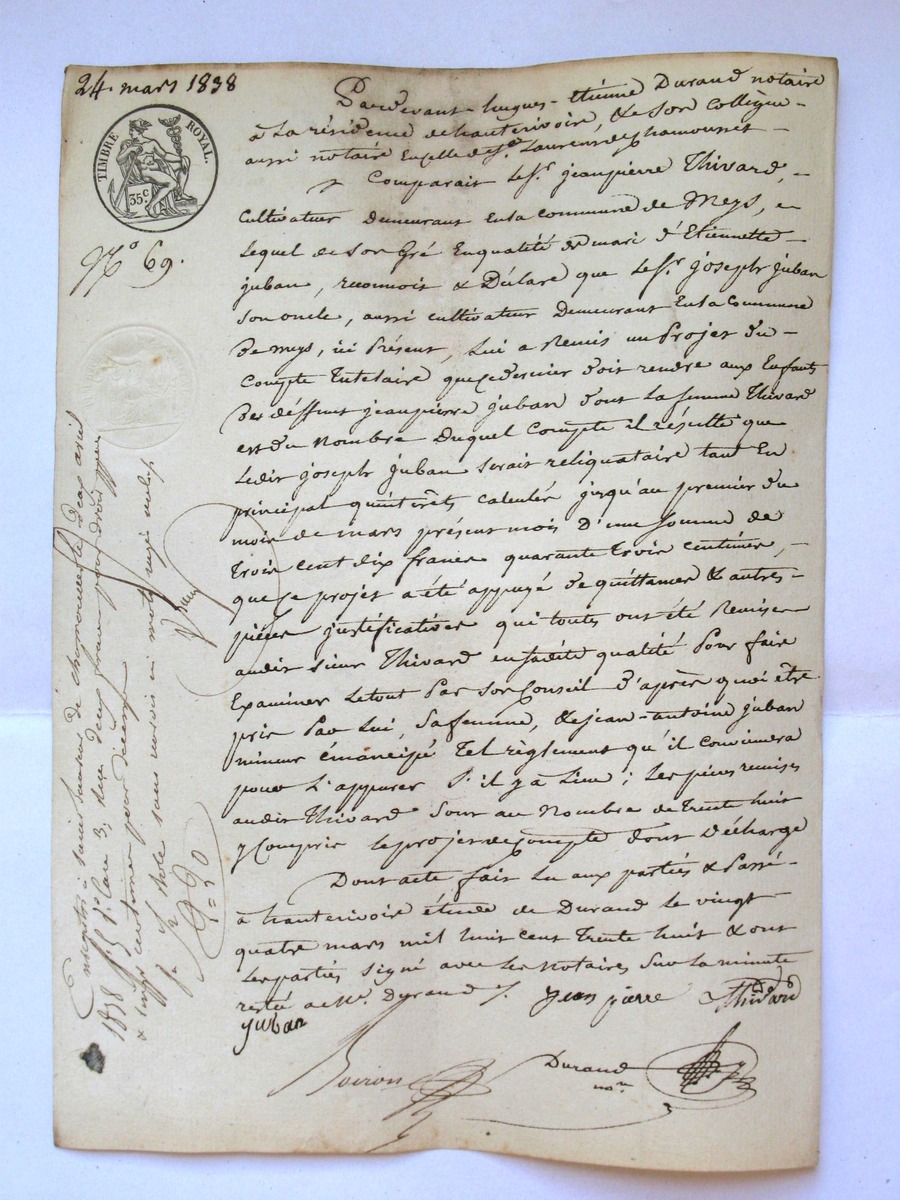 24. mars 1838
TIMBRE ROYAL.
35 c.
N.º 69.
Pardevant hugues-étienne Durand notaire
à La résidence de hauterivoire, & son collègue
aussi notaire En celle de St. Laurent de Chamousset
Comparait le Sr. jeanpierre Thivard,
Cultivateur Demeurant En la commune de Meys,
Lequel de Son Gré En qualité de mari d'Etiennette
juban, reconnoit & Déclare que le Sr. joseph juban
Son oncle, aussi cultivateur Demeurant En la Commune
De meys, ici Présent, Lui a Remis un Projet du
Compte Tutelaire que ce dernier doit rendre aux Enfants
Des déffunt jeanpierre juban dont la femme Thivard
est du Nombre Duquel Compte il résulte que
Ledit joseph juban Serait reliquataire tant En
principal qu'intérêts calculés jusqu'au premier du
mois de mars présent mois D'une Somme de
Trois cent dix francs quarante trois centimes,
que ce projet a été appuyé de quittances & autres
pièces justificatives qui toutes ont été Remises
audit sieur Thivard en sadite qualité Pour faire
Examiner Le tout Par Son Conseil D'après quoi être
pris Par Lui, Sa femme, & jean-antoine juban
mineur émancipé Tel règlement qu'il conviendra
pour L'appurer S'il y a Lieu; Les pièces remises
audit Thivard Sont au Nombre de Trente huit
y Compris le projet de Compte dont Décharge
Dont acte fait Lu aux parties & Passé
à hauterivoire étude de Durand le vingt
quatre mars mil huit cent Trente huit & ont
Les parties Signé avec les Notaires Sur La minute
restée a Me. Durand
jean pierre Thivard
juban
Boiron
Durand
nore
Enregistré à saint laurent de chamousset le deux avril
1838 fo. Co. 3, reçu deux francs pour droit
& vingt centimes pour décime
2=20